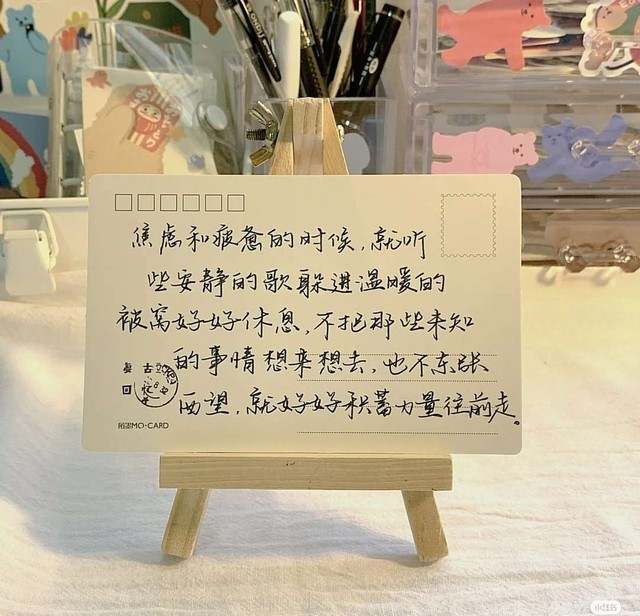 焦虑和疲惫的时候，就听
些安静的歌躲进温暖的
被窝好好休息，不把那些未知
的事情想来想去，也不东张
西望，就好好积蓄力量往前走。
陌墨MO·CARD
小红书